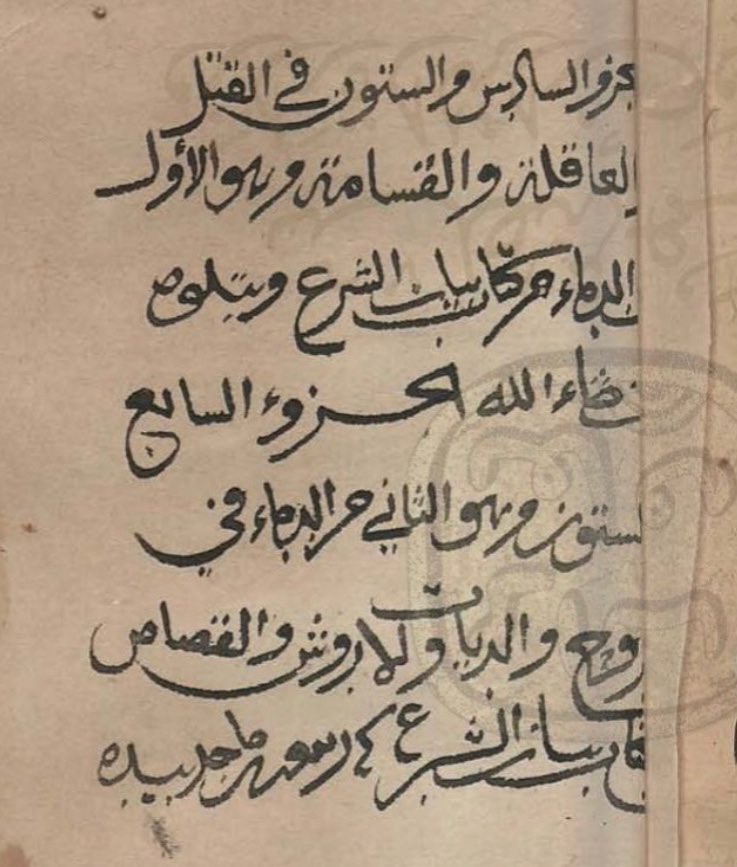 الجزو السادس والستون في القتل
العاقلة والقسامة وهو الأول
الدماء من كتاب بيان الشرع ويتلوه
شاء الله الجزوء السابع
الستون وهو الثاني من الدماء في
الجروح والديات والاروش والقصاص
كتاب بيان الشرع ماجد بيده